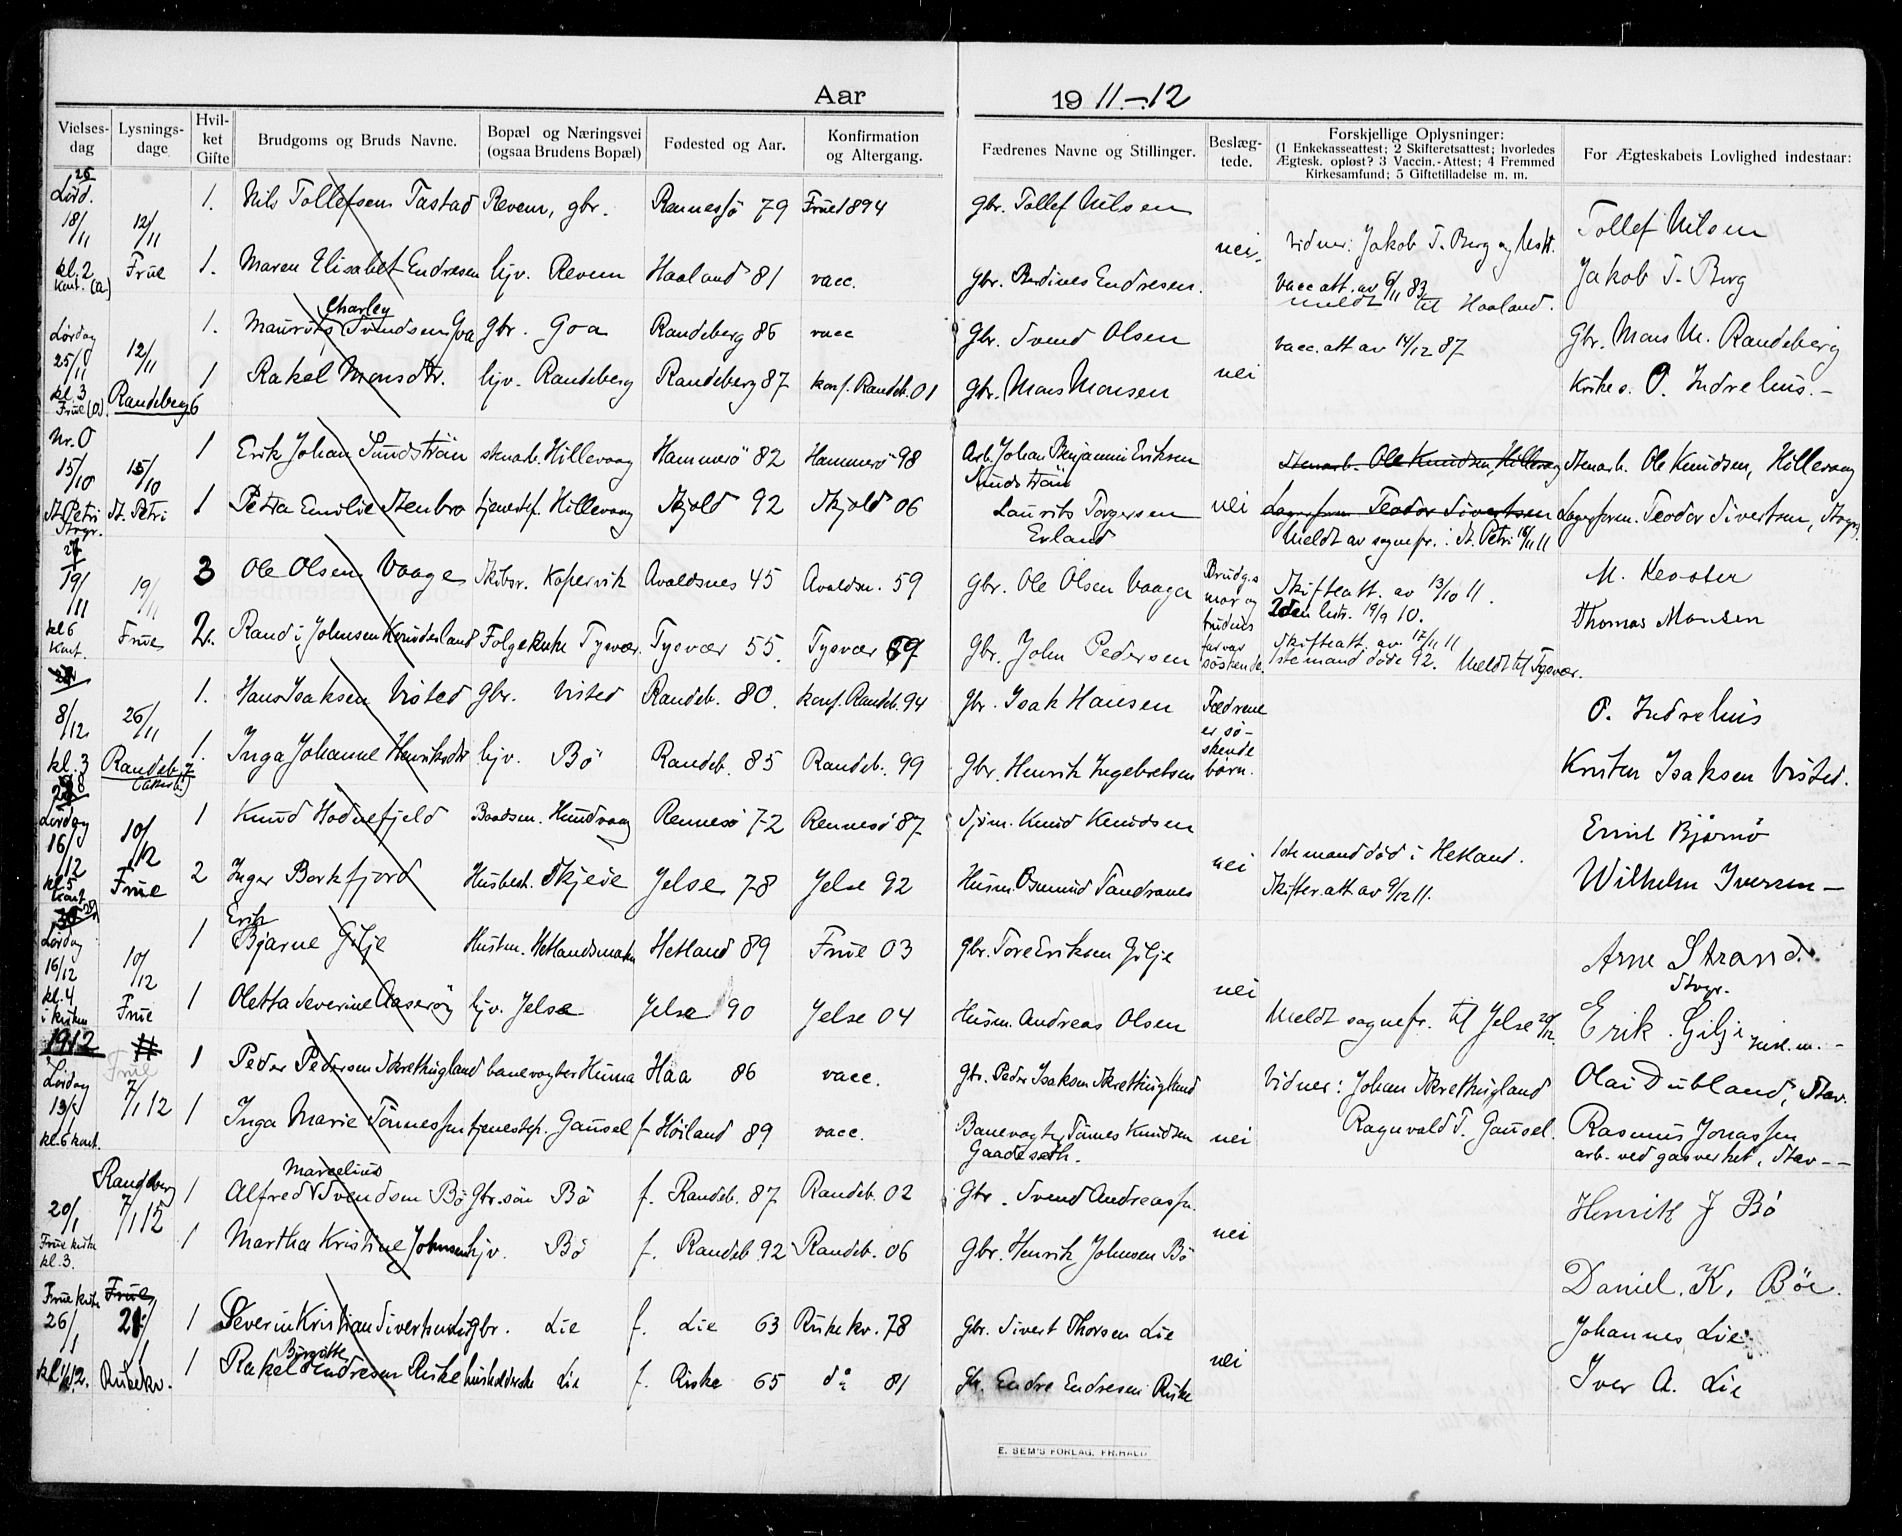 Aar 19 11-12
Vielses-dag
Lysnings-dage
Hvil-ket Gifte
Brudgoms og Bruds Navne.
Bopæl og Næringsvei (ogsaa Brudens Bopæl)
Fødested og Aar.
Konfirmation og Altergang.
Fædrenes Navne og Stillinger.
Beslæg-tede.
Forskjellige Oplysninger:
(1 Enkekasseattest; 2 Skifteretsattest; hvorledes
Ægtesk. opløst? 3 Vaccin.-Attest; 4 Fremmed
Kirkesamfund; 5 Giftetilladelse m. m.
For Ægteskabets Lovlighed indestaar:
Lörd. 18/11 12/11 1. Nils Tollefsen Tastad Revem, gbr. Rennesö 79 Frue 1894 gbr. Tollef Nilsen Tollef Nilsen
nei. Vidner: Jakob T. Berg og
kl. 2 Kont. (a) Frue 1. Maren Elisabet Endresen hjv. Revem Haaland 81 vacc. gbr. Berdines Endresen. vacc att. av 6/11 83 meldt til Haaland. Jakob T. Berg
Charley
Lørdag 25/11 12/11 1. Maurits Svendsen Goa gbr. Goa Randeberg 86 vacc Gbr. Svend Olsen vacc. att av 14/12 87 Gbr. Mons M. Randeberg
kl. 3 Frue (a). Randeberg 6 1 Rakel Monsdtr. hjv. Randeberg Randeberg 87 konf. Randeb. 01 Gbr. Mons Monsen nei Kirkes. O. Indrehus.-
Nr. 0 15/10 15/10 1 Erik Johan Sundsträn stenarb. Hillevaag Hammerö 82 Hammerö 98 Arb. Johan Benjamin Eriksen Sundsträn Stenarb. Ole Knudsen, Hillevaag Stenarb. Ole Knudsen, Hillevaag
St. Petri Stvgr. St. Petri 1 Petra Emilie Stenbro tjenestef. Hillevaag Skjold 92 Skjold 06 Laurits Torgersen Erland nei Lagerform. Teodor Sivertsen Lagerform. Teodor Sivertsen, Stvgr.
Meldt av sognepr. i St. Petri 18/11 11
19/11 19/11 3 Ole Olsen Vaage Skibsr. Kopervik Avaldsnes 45 Avaldsn. 59 Gbr. Ole Olsen Vaage Brudg.s mor og brudens far var söskende. Skifteatt. av 13/10 11. 2den hstr. 19/9 10. M. Kesster
kl 6 Kont. Frue 2. Randi Johnsen Knudsland Folgekone Tysvær. Tysvær 55. Tysvær 69 Gbr. John Pedersen skifteatt. av 17/11 11 1ste mand döde 92. Meldt til Tysvær. Thomas Monsen
8/12. 26/11 1. Hans Isaksen Visted gbr. Visted Randeb. 80. konf. Randeb. 94 Gbr. Isak Hansen Fædrene er sö-skende börn. O. Indrehus
kl. 3 Randeb. 7 1. Inga Johanne Henriksdtr hjv. Bö Randeb. 85 Randeb. 99 Gbr. Henrik Ingebretsen Kristen Isaksen Visted.
Lördag 16/12 10/12 1 Knud Hodnefjeld Baadsm. Hundvaag Rennesö 72 Rennesö 87 Sjöm. Knud Knudsen Emil Bjørnø
kl. 5 Kont. Frue 2 Inger Borkfjord Husbest. Skjeie Jelse 78 Jelse 92 Husm. Osmund Tandranes nei 1ste mand död i Hetland. Skifter. att av 9/12 11. Wilhelm Iversen-
Erik
Lördag 16/12 10/12 1 Bjarne Gilje Hustm. Hetlandsmarken Hetland 89 Frue 03 gbr. Tore Eriksen Gilje Arne Strand. Stvgr.
kl. 4 i kirken Frue 1 Oletta Severine Aaseröy hjv. Jelse Jelse 90 Jelse 04 Husm. Andreas Olsen nei Meldt sognepr. til Jelse 20/12. Erik Gilje
1912 Frue
Lördag 13/1 7/1 12 1 Peder Pedersen Skrethugland banevogter Hinna Haa 86 vacc. Gbr. Peder Isaksen Skrethugland Vidner: Johan Skrethugland Olai Dubland, Stav.
kl. 6 kont. 1 Inga Marie Tönnessen tjenestep. Gausel f Höiland 89 vacc. Banevogter Tönnes Knudsen Gaadeseth. nei Ragnvald T. Gausel. Rasmus Jonassen arb. ved gasverket, Stav--
Marselius
20/1 Randeberg 7/1 12 1 Alfred Svendsen Bö Gbr.sön Bö f. Randeb. 87 Randeb. 02 Gbr. Svend Andreassen. Henrik J Bö
Frue kirke kl. 3. 1 Martha Kristine Johnsen hjv. Bö f. Randeb. 92 Randeb. 06 Gbr. Henrik Johnsen Bö nei Daniel. K. Böe.
Frue kirke Frue
26/1 21/1 1 Severin Kristian Sivertsen Lie gbr. Lie f. Lie 63 Riskekv. 78 Gbr. Sivert Thorsen Lie Johannes Lie
Birgitte
kl 12. Riskekv. 1 Rakel Endresen Riske husholderske Lie f. Riske 65 do 81 gbr. Endre Endresen Riske nei Iver A. Lie
E. SEM'S FORLAG, FR.HALD